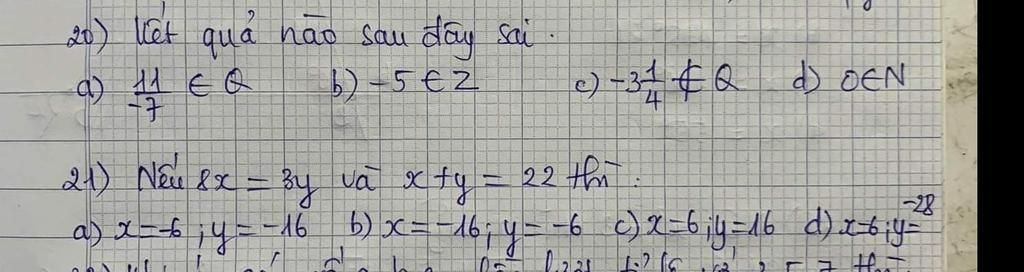 20) Kết quả nào sau đây sai.
a) 11/-7 ∈ Q b) -5 ∈ Z c) -3 1/4 ∉ Q d) 0∈N
21) Nếu 8x = 3y và x+y = 22 thì:
a) x=-6; y=-16 b) x=-16; y=-6 c) x=6; y=16 d) x=6; y=-28